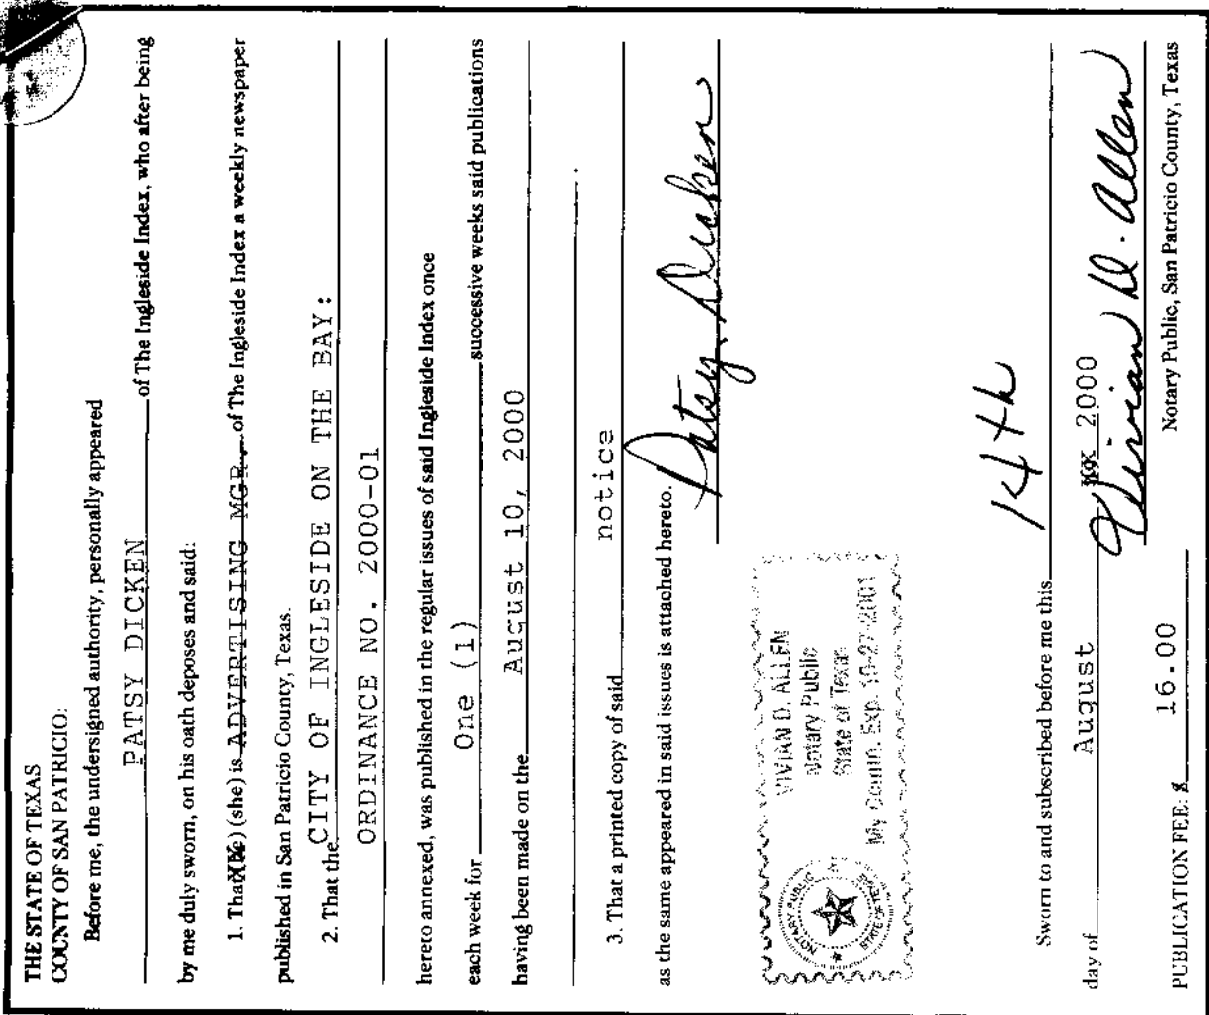 THE STATE OF TEXAS
COUNTY OF SAN PATRICIO:
Before me, the undersigned authority, personally appeared
PATSY DICKEN of The Ingleside Index, who after being
by me duly sworn, on his oath deposes and said:
1. That (he) (she) is ADVERTISING MGR. of The Ingleside Index a weekly newspaper
published in San Patricio County, Texas.
2. That the CITY OF INGLESIDE ON THE BAY:
ORDINANCE NO. 2000-01
hereto annexed, was published in the regular issues of said Ingleside Index once
each week for One (1) successive weeks said publications
having been made on the August 10, 2000
3. That a printed copy of said notice
as the same appeared in said issues is attached hereto.
Patsy Dicken
VIVIAN D. ALLEN
Notary Public
State of Texas
My Comm. Exp. 10-27-2001
NOTARY PUBLIC
STATE OF TEXAS
Sworn to and subscribed before me this 14th
day of August 2000
Vivian D. Allen
Notary Public, San Patricio County, Texas
PUBLICATION FEE: $ 16.00